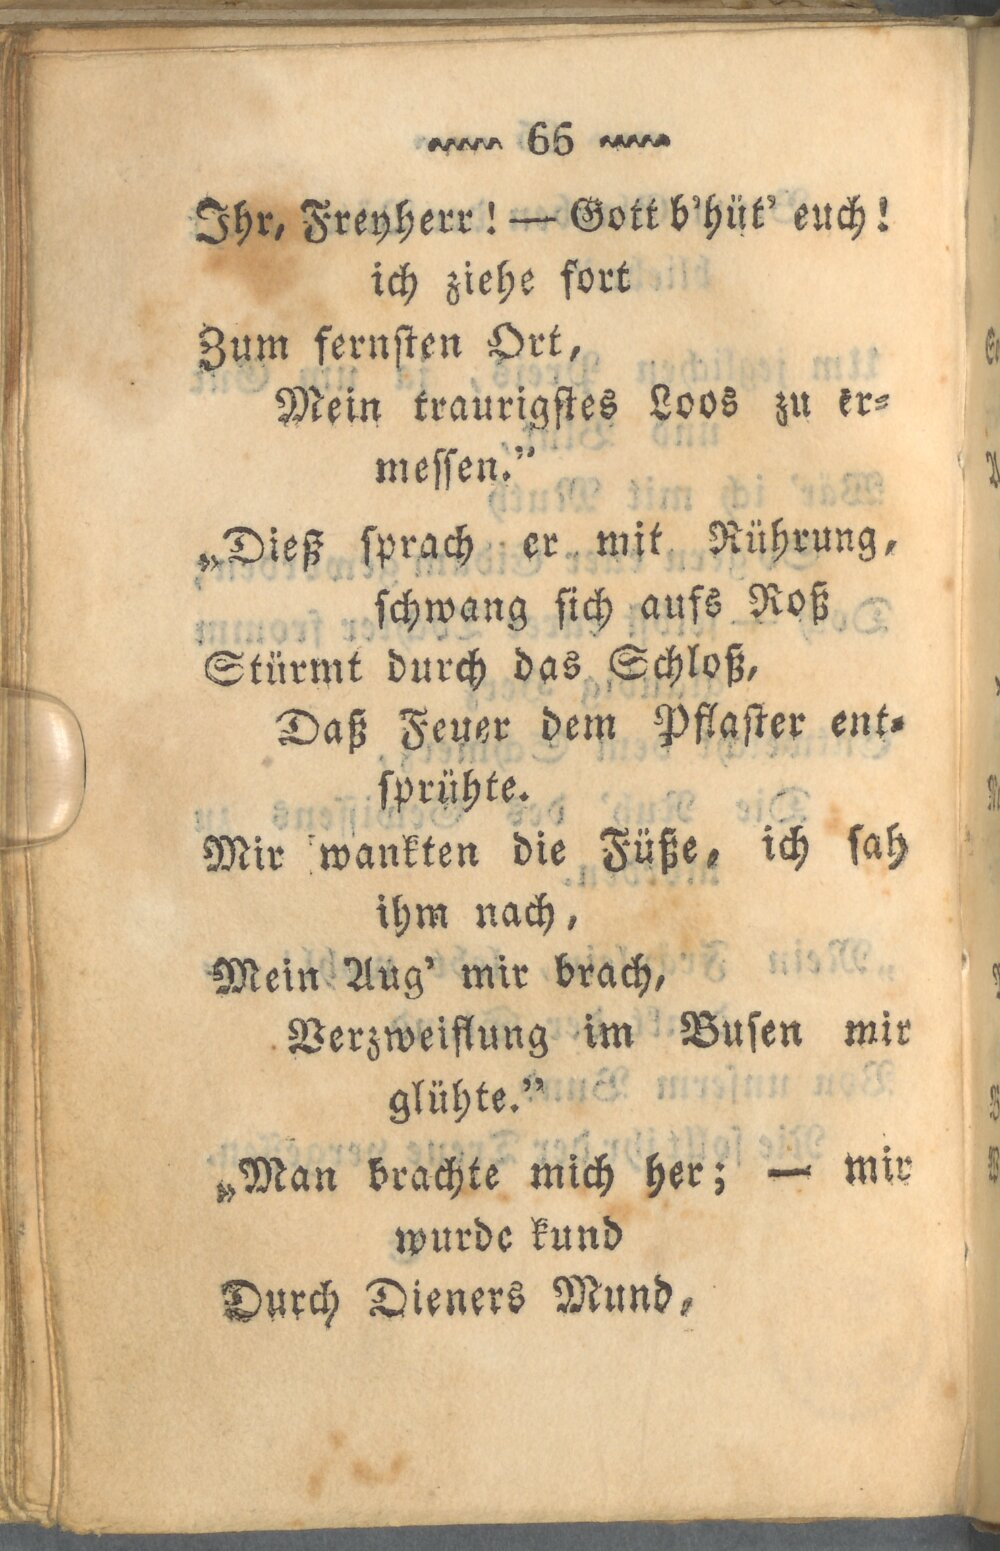 66
Ihr, Freyherr! — Gott b'hüt' euch!
ich ziehe fort
Zum fernsten Ort,
Mein traurigstes Loos zu er-
messen.”
„Dieß sprach er mit Rührung,
schwang sich aufs Roß
Stürmt durch das Schloß,
Daß Feuer dem Pflaster ent-
sprühte.
Mir wankten die Füße, ich sah
ihm nach,
Mein Aug' mir brach,
Verzweiflung im Busen mir
glühte.”
„Man brachte mich her; — mir
wurde kund
Durch Dieners Mund,